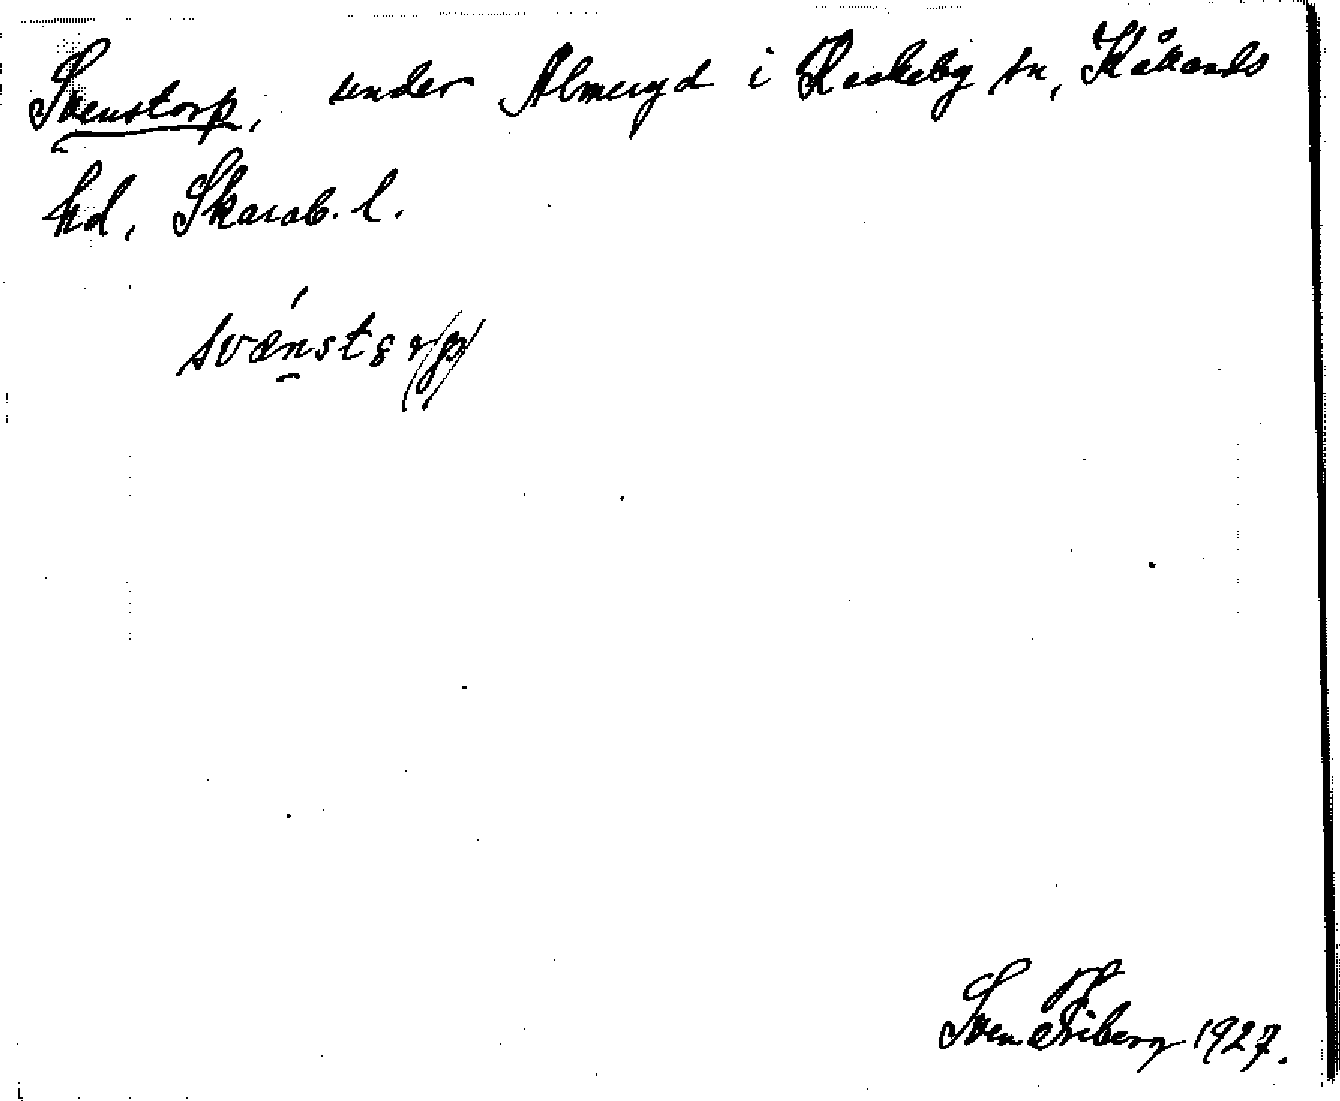 Svenstorp, under Almeryd i Häckeby sn, Kåkinds
hd, Skarab. l.
svǽnstꞩr/p/
Sven Friberg 1927.